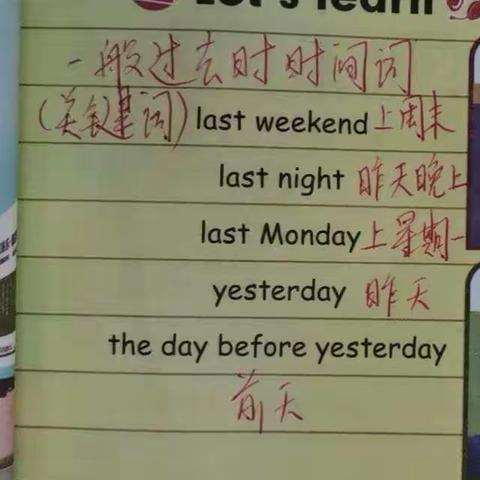 Let's learn
一般过去时时间词
(关键词) last weekend 上周末
last night 昨天晚上
last Monday 上星期一
yesterday 昨天
the day before yesterday
前天